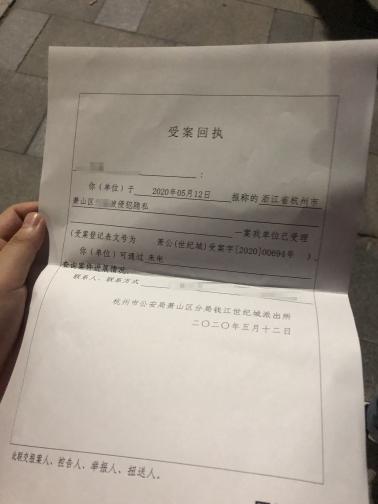 受案回执
：
你（单位）于 2020年05月12日 报称的 浙江省杭州市
萧山区 被侵犯隐私
一案我单位已受理
（受案登记表文号为 萧公(世纪城)受案字[2020]00694号 ）。
你（单位）可通过
查询案件进展情况。
联系人、联系方式
杭州市公安局萧山区分局钱江世纪城派出所
二〇二〇年五月十二日
此联交报案人、控告人、举报人、扭送人。